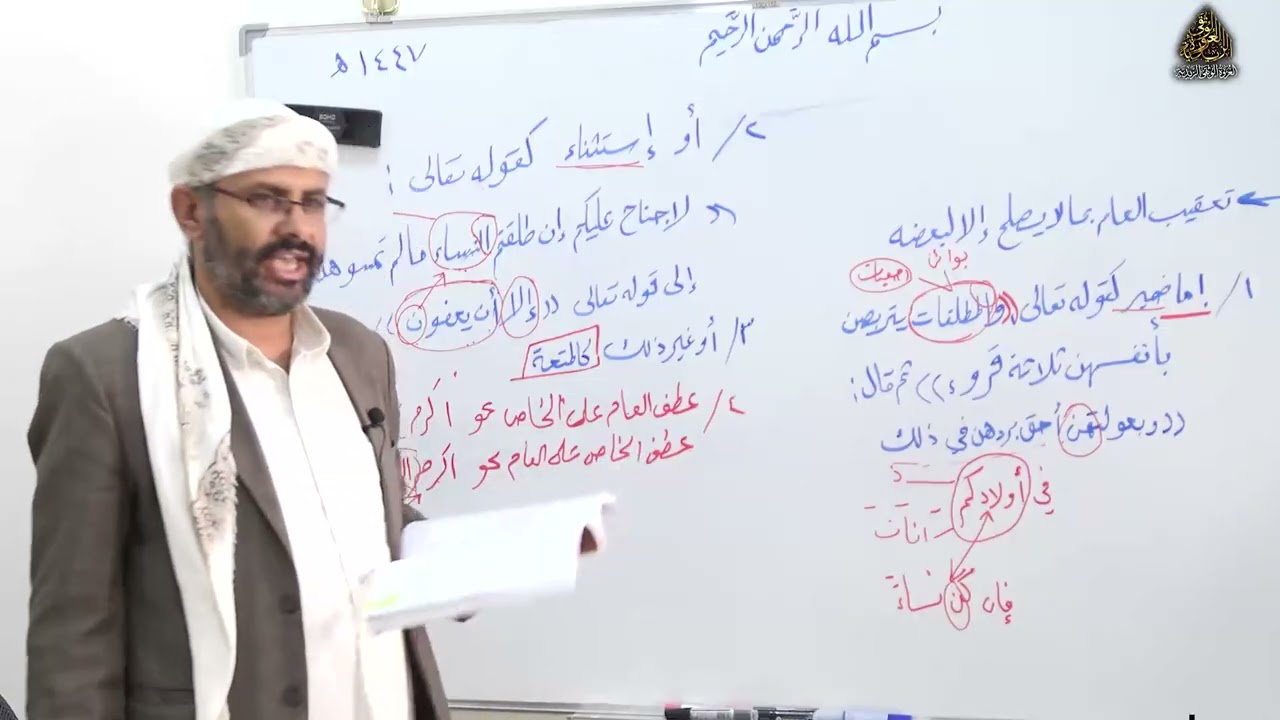 بسم الله الرَّحمن الرَّحيم
١٤٤٧ هـ
تعقيب العام بما لا يصلح إلا لبعضه
بوائن
رجعيات
١/ إما ضمير كقوله تعالى ((والمطلقات يتربصن
بأنفسهن ثلاثة قروء)) ثم قال:
((وبعولتهن أحق بردهن في ذلك
في أولادكم
اناث
فإن كن نساءً
٢/ أو إستثناء كقوله تعالى :
((لا جناح عليكم إن طلقتم النساء ما لم تمسوهن
إلى قوله تعالى ((إلا أن يعفون))
٣/ أو غير ذلك كالمتعة
٤/ عطف العام على الخاص نحو أكرم
عطف الخاص على العام نحو أكرم
العروة الوثقى الزيدية
BOHO